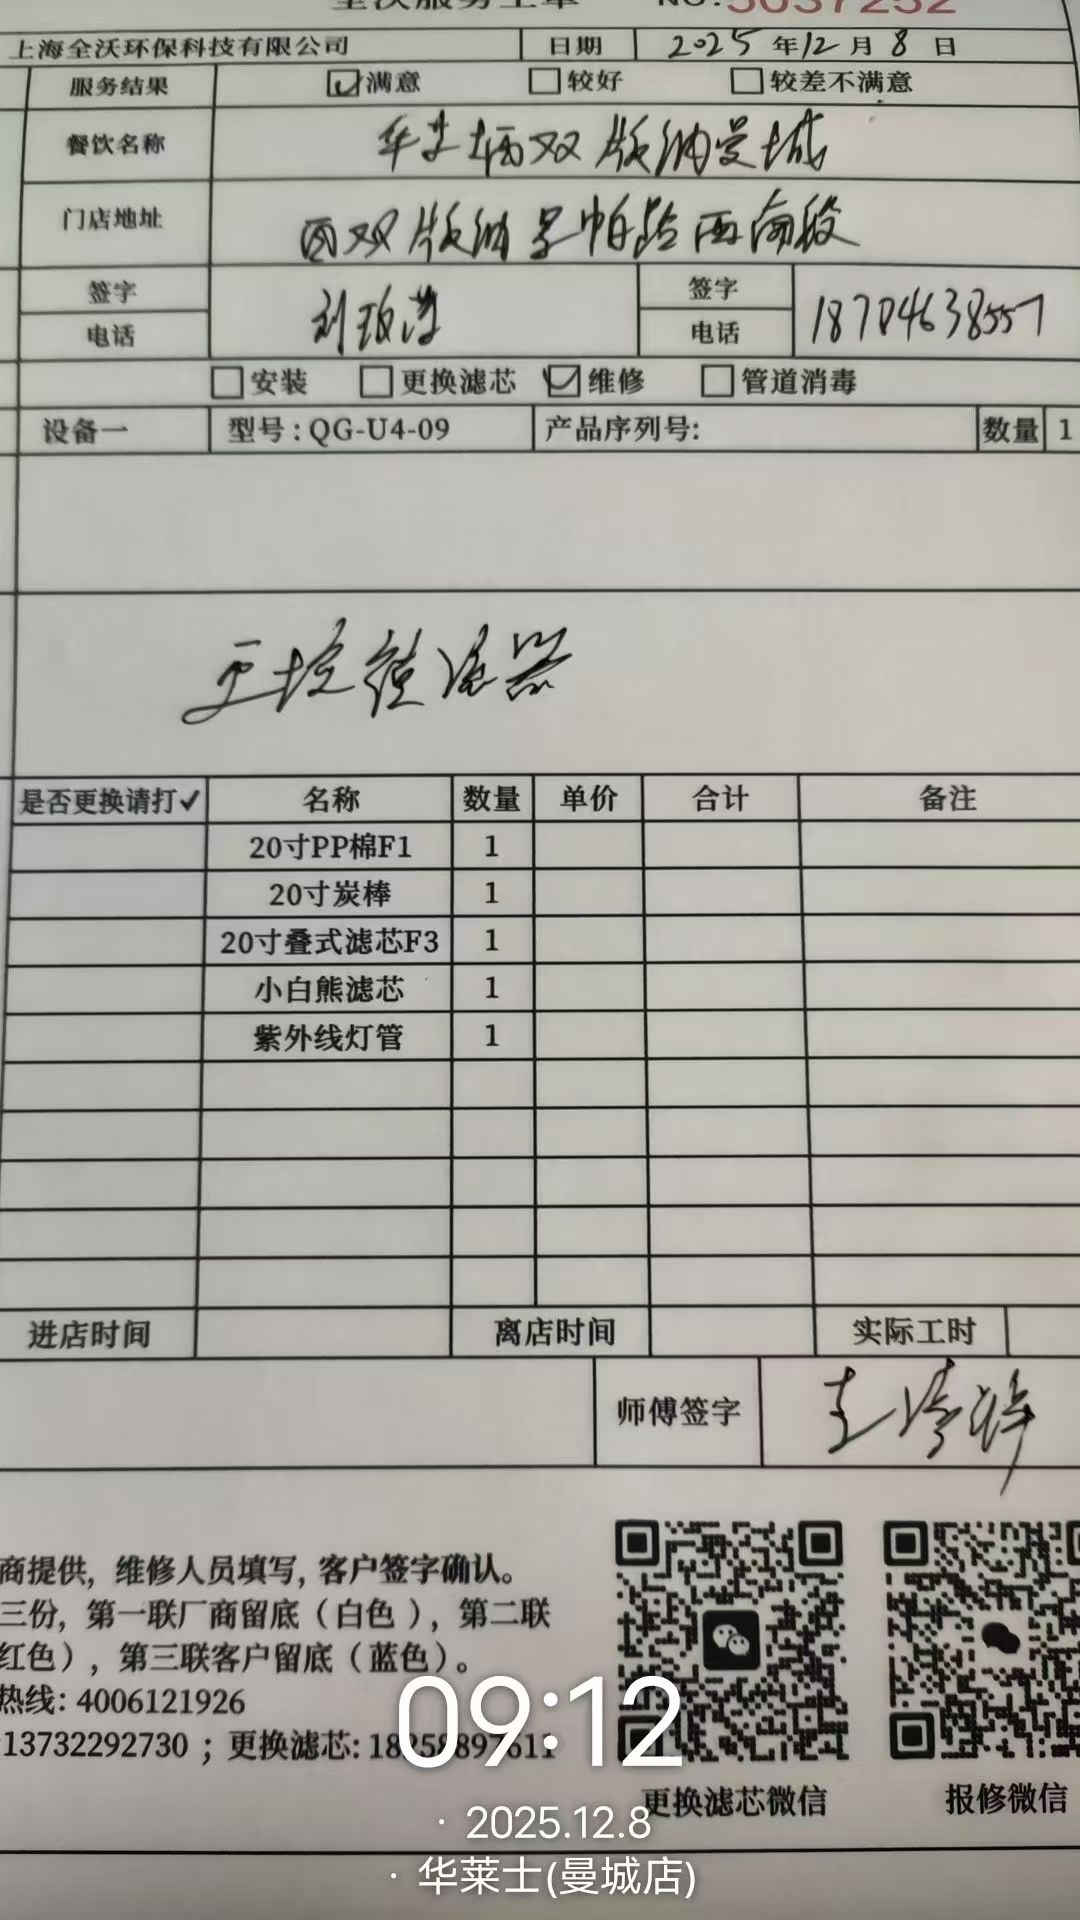 全沃服务工单 NO.5037252
上海全沃环保科技有限公司 日期 2025年12月8日
服务结果 满意 较好 较差不满意
餐饮名称 华莱士西双版纳曼城
门店地址 西双版纳 路西南段
签字 刘 签字
电话 电话 18704638557
安装 更换滤芯 维修 管道消毒
设备一 型号:QG-U4-09 产品序列号: 数量 1
滤器
是否更换请打✓ 名称 数量 单价 合计 备注
20寸PP棉F1 1
20寸炭棒 1
20寸叠式滤芯F3 1
小白熊滤芯 1
紫外线灯管 1
进店时间 离店时间 实际工时
师傅签字
商提供，维修人员填写，客户签字确认。
三份，第一联厂商留底（白色），第二联
红色），第三联客户留底（蓝色）。
热线: 4006121926
13732292730；更换滤芯:
更换滤芯微信 报修微信
09:12
· 2025.12.8
· 华莱士(曼城店)